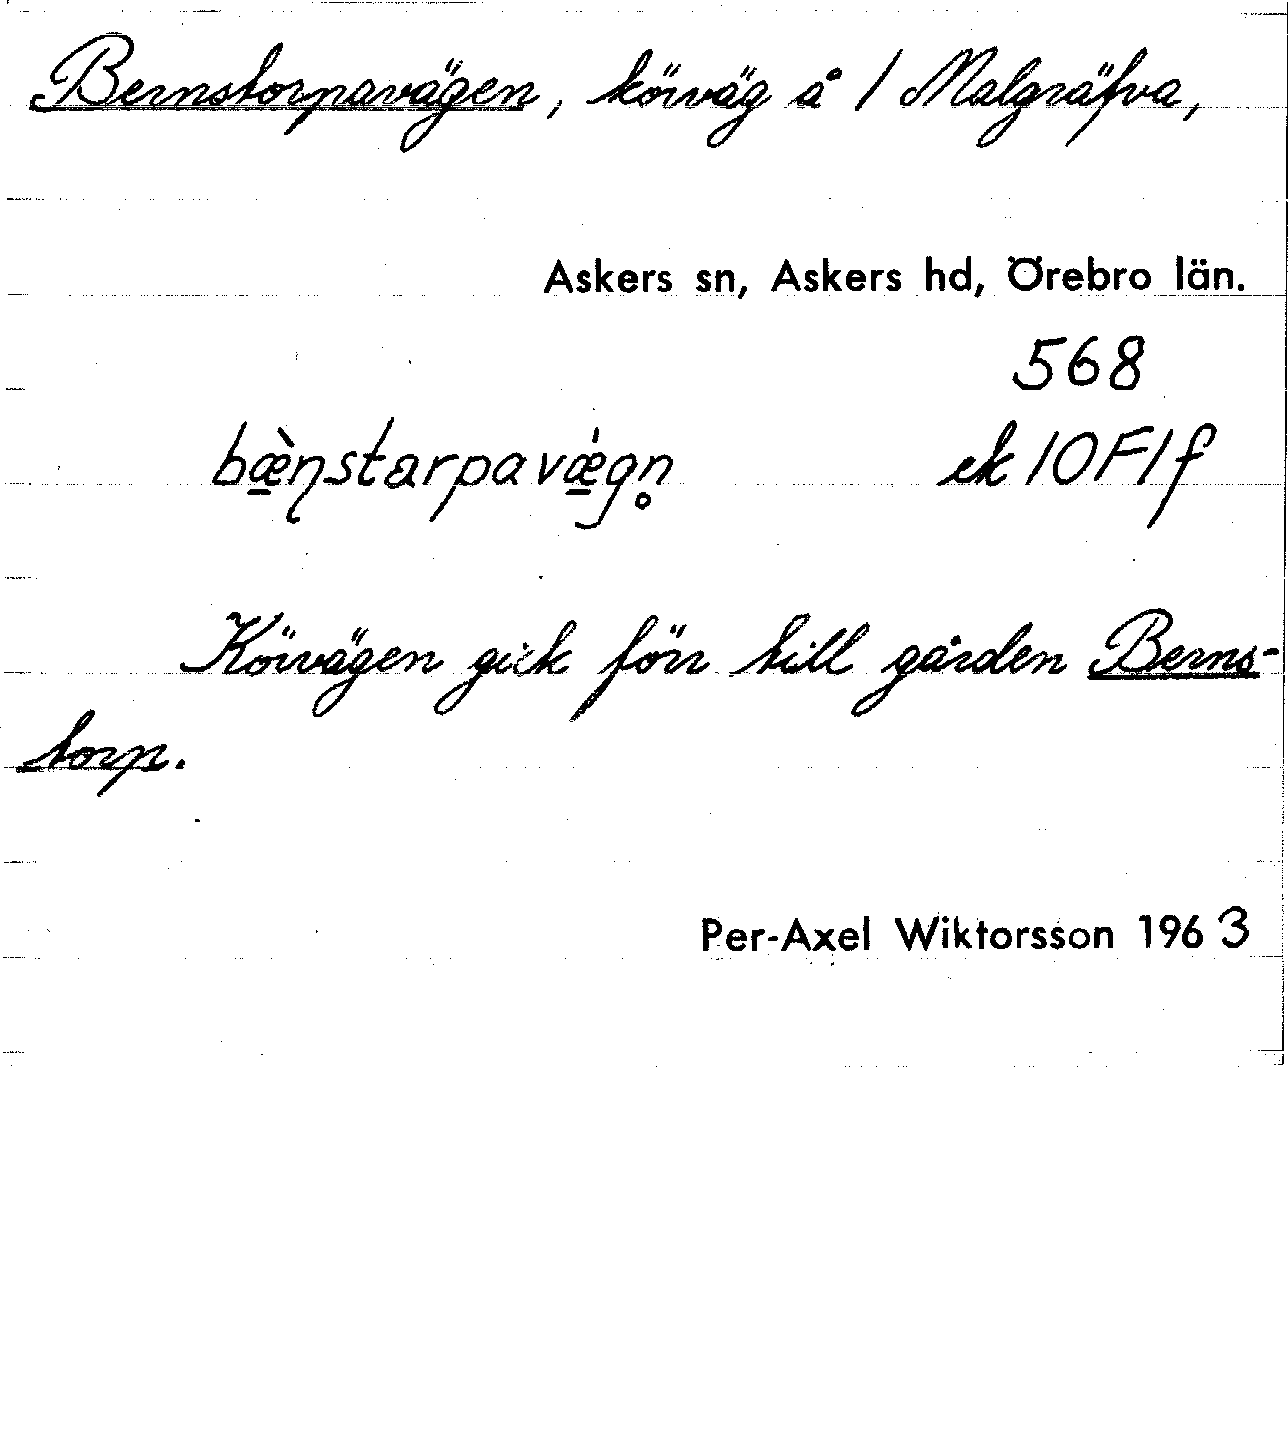 Bernstorpavägen, körväg å 1 Malgräfva,
Askers sn, Askers hd, Örebro län.
568
bæ̱̀ɳstarpavǽ̱gn̥ ek 10F1f
Körvägen gick förr till gården Berns-
torp.
Per-Axel Wiktorsson 1963